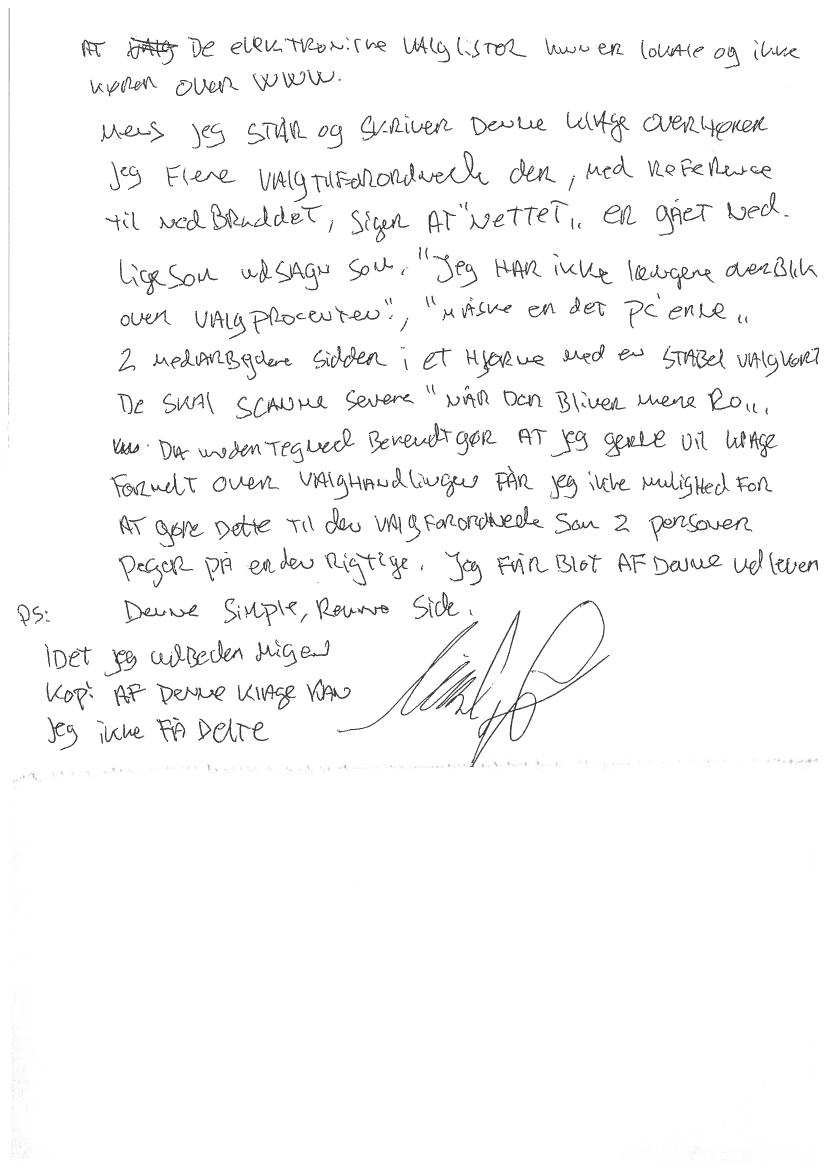 AT De elektroniske valglister kun er lokale og ikke
kører over WWW.
Mens jeg står og skriver denne klage overhører
jeg flere valgtilforordnede der, med reference
til nedbruddet, siger at "nettet" er gået ned.
Ligesom udsagn som. "Jeg har ikke længere overblik
over valgprocenten", "måske er det PC'erne"
2 medarbejdere sidder i et hjørne med en stabel valgkort
De skal scanne senere "når der bliver mere ro".
Da undertegned bekendtgør at jeg gerne vil klage
formelt over valghandlingen får jeg ikke mulighed for
at gøre dette til den valgforordnede som 2 personer
peger på er den rigtige. Jeg får blot af denne udleveret
denne simple, side.
PS: Idet jeg udbeder mig en
kopi af denne klage kan
jeg ikke få dette